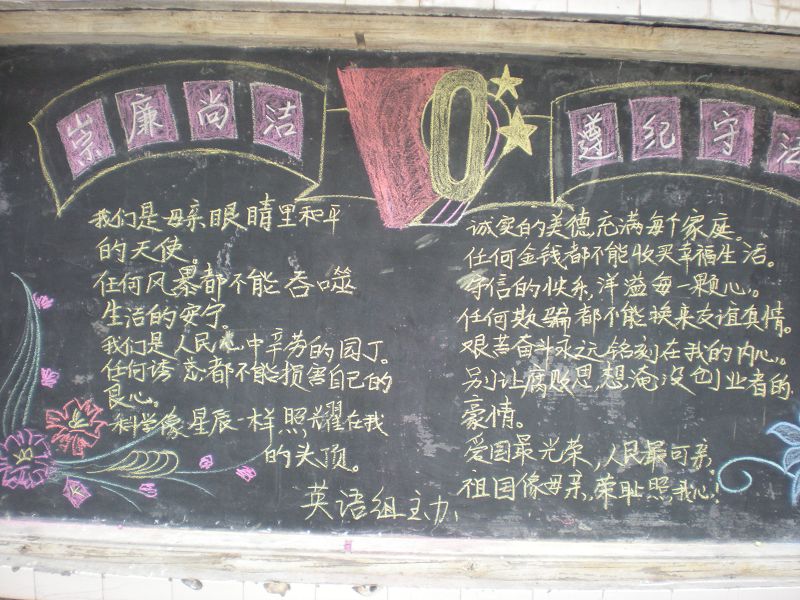 崇廉尚洁
0
遵纪守法
我们是母亲眼睛里和平
的天使。
任何风暴都不能吞噬
生活的安宁
我们是人民心中辛劳的园丁。
任何诱惑都不能损害自己的
良心。
科学像星辰一样照耀在我
的头顶。
英语组主办
诚实的美德,充满每个家庭。
任何金钱都不能收买幸福生活。
守信的快乐,洋溢每一颗心。
任何欺骗都不能换来友谊真情。
艰苦奋斗永远铭刻在我的内心。
别让腐败思想淹没创业者的
豪情。
爱国最光荣,人民最可亲
祖国像母亲,荣耻照我心!